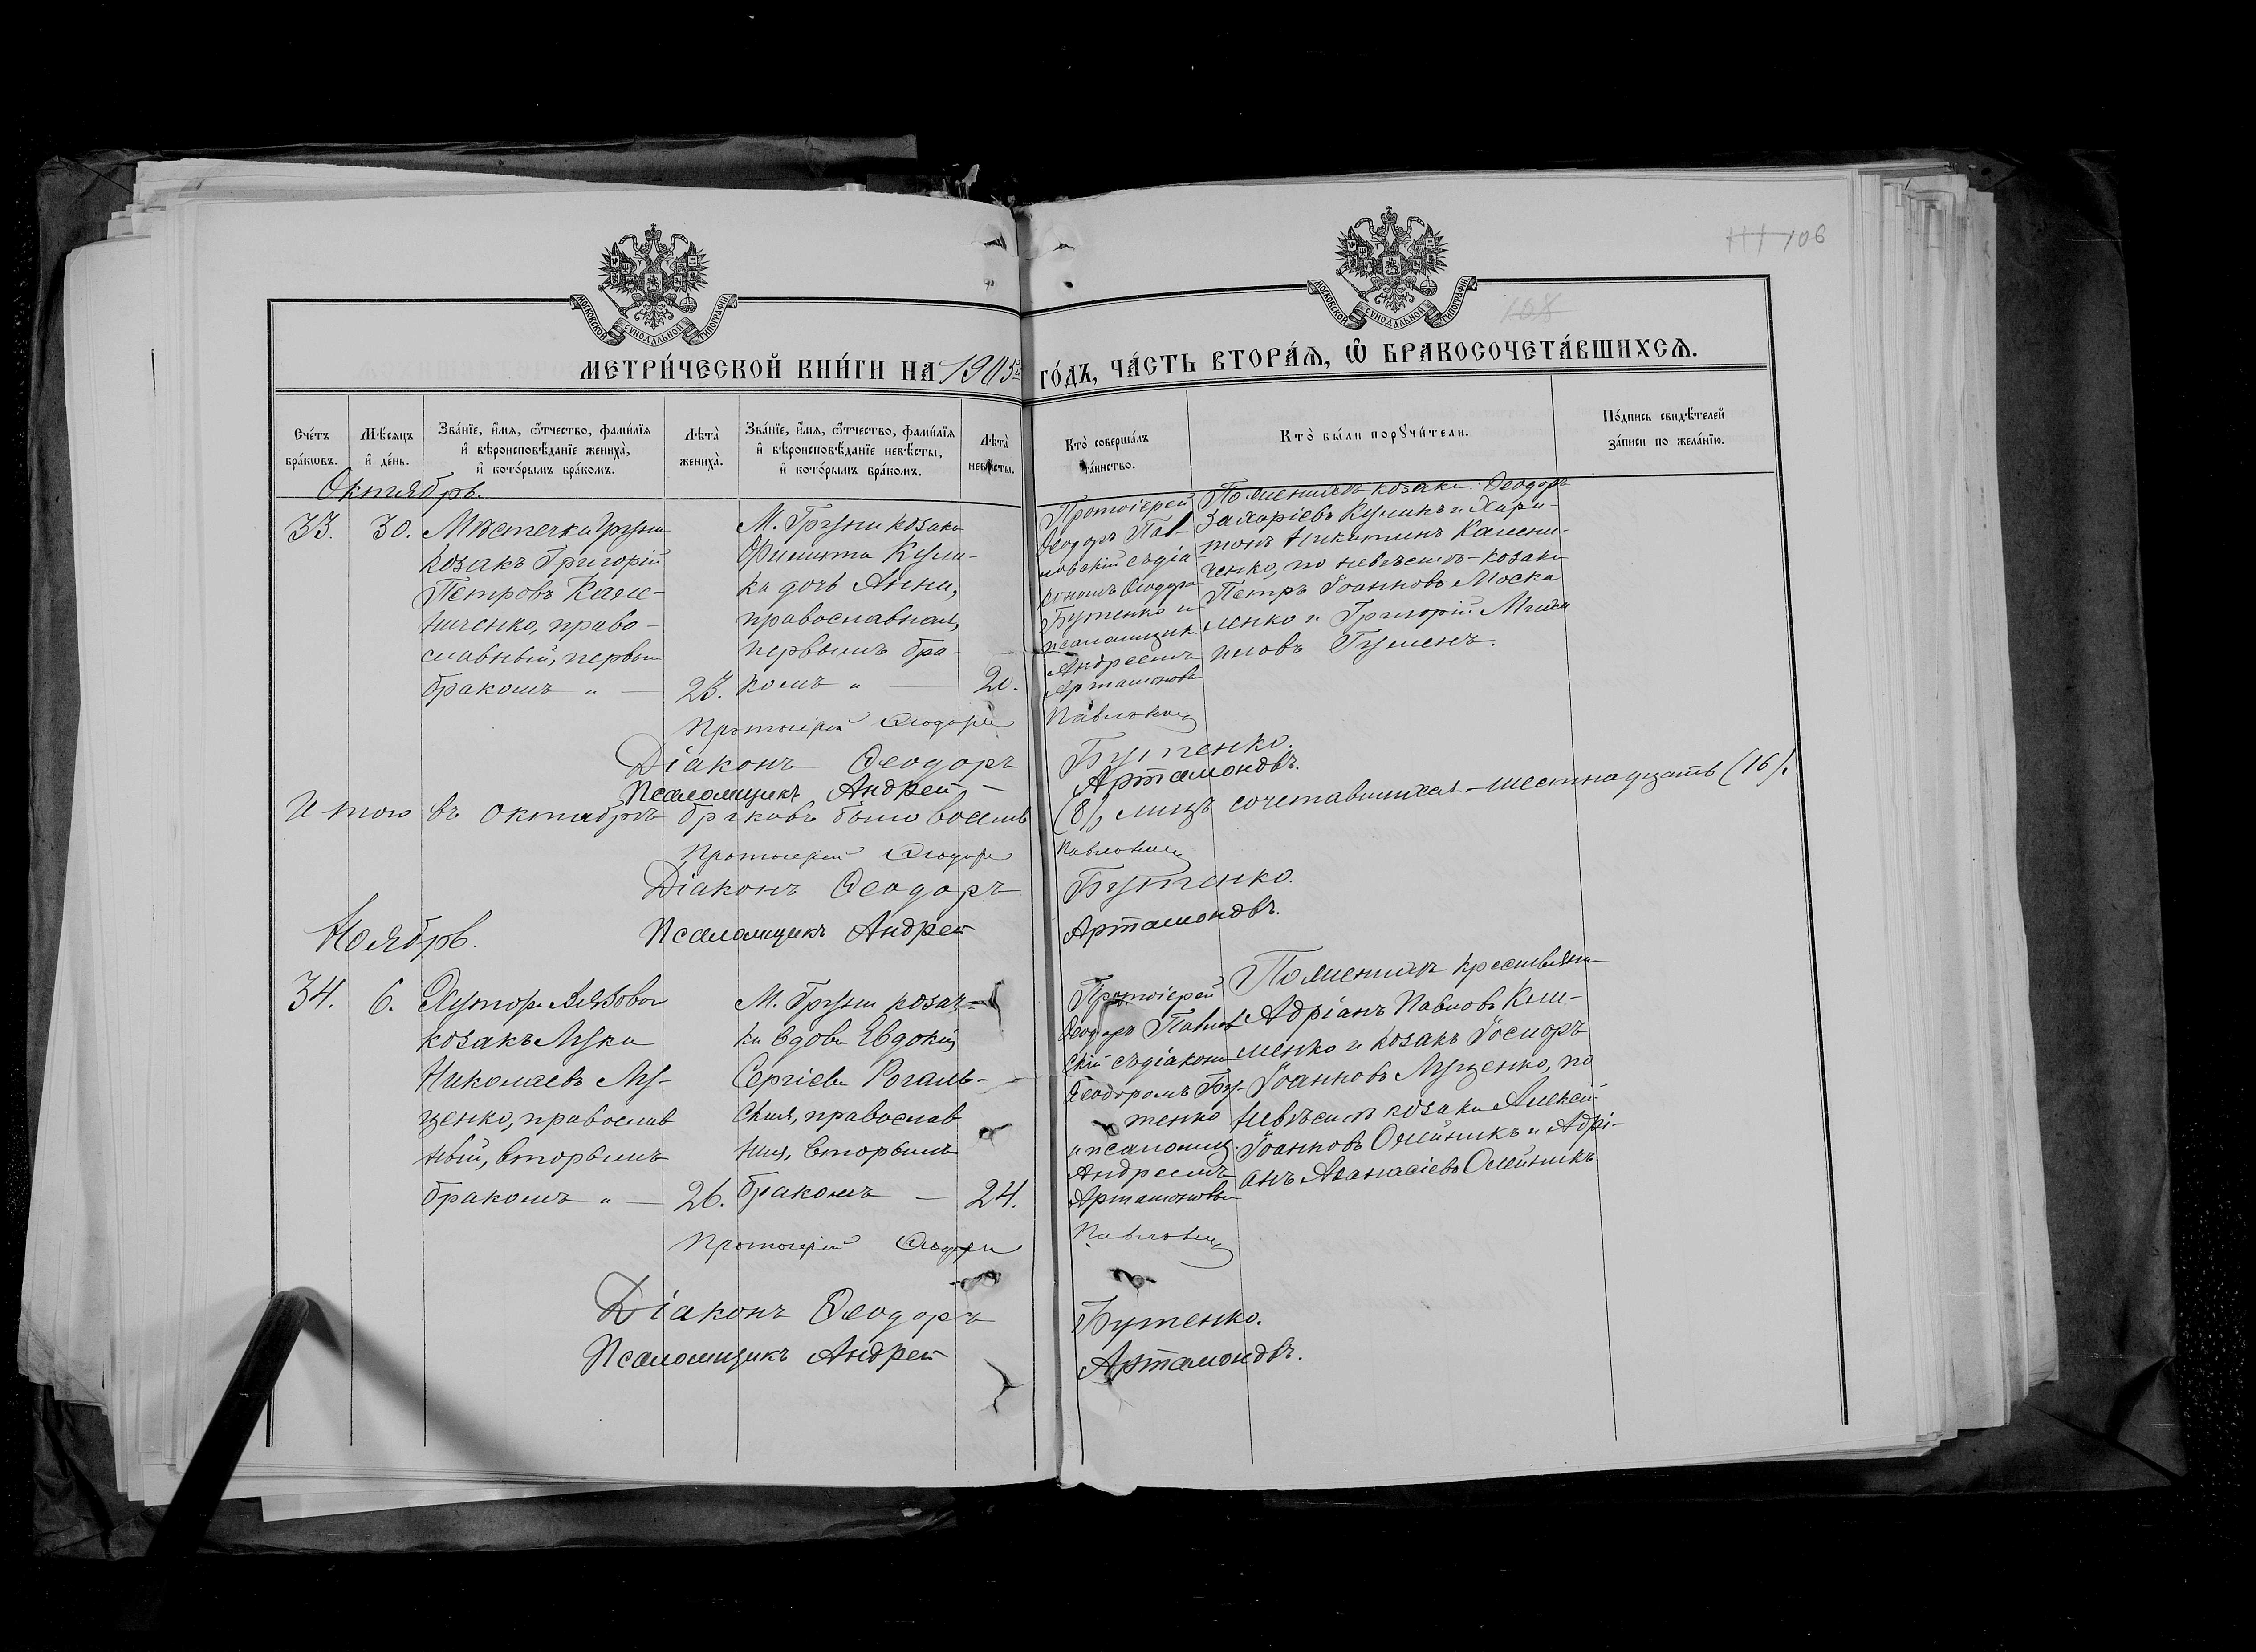 106
108
МОСКОВСКОЙ СѴНОДАЛЬНОЙ ТИПОГРАФІИ
МОСКОВСКОЙ СѴНОДАЛЬНОЙ ТИПОГРАФІИ
МЕТРИ́ЧЕСКОЙ КНИ́ГИ НА 1905й ГО́ДЪ, ЧА́СТЬ ВТОРА́Ѧ, Ѽ БРАКОСОЧЕТА́ВШИХСѦ.
Сче́тъ бра́кѡвъ.
Мѣ́сѧцъ и҆ де́нь.
Зва́нїе, и҆́мѧ, ѻ҆́тчество, фами́лїѧ
и҆ вѣроисповѣ́данїе жениха̀,
и҆ кото́рымъ бра́комъ.
Лѣта̀ жениха̀.
Зва́нїе, и҆́мѧ, ѻ҆́тчество, фами́лїѧ
и҆ вѣроисповѣ́данїе невѣ́сты,
и҆ кото́рымъ бра́комъ.
Лѣта̀ невѣ́сты.
Кто̀ соверша́лъ та́инство.
Кто̀ бы́ли порꙋчи́тели.
По́дпись свидѣ́телей
за́писи по жела́нїю.
Октябрь.
33.
30.
Мѣстечка Груни
козакъ Григорій
Петровъ Каме-
ниченко, право-
славный, первым
бракомъ " —
23.
М. Груни козака
Филиппа Кули-
ка дочь Анна,
православная,
первымъ бра-
комъ " —
20.
Протоіерей
Ѳеодоръ Пав-
ловскій съ діа
кономъ Ѳеодоро
Бутенко и
псаломщик
Андреемъ
Артамоновы
По женихѣ козаки: Ѳеодоръ
Захаріевъ Куликъ и Хари-
тонъ Никитинъ Камени-
ченко, по невѣстѣ - козаки
Петръ Іоанновъ Моска
ленко и Григорій
Гуменъ.
Протоіерей Ѳеодоръ Павловскій
Діаконъ Ѳеодоръ Бутенко.
Псаломщикъ Андрей Артамоновъ.
Итого въ Октябрѣ браковъ было восемь (8), лицъ сочетавшихся - шестнадцать (16).
Протоіерей Ѳеодоръ Павловскій
Діаконъ Ѳеодоръ Бутенко.
Псаломщикъ Андрей Артамоновъ.
Ноябрь.
34.
6.
Хутора
козакъ Лука
Николаевъ Лу-
ценко, православ
ный, вторымъ
бракомъ " —
26.
М. Груни козач-
ка вдова Евдокія
Сергіева Рогаль-
ская, православ
ная, вторымъ
бракомъ —
24.
Протоіерей
Ѳеодоръ Павлов
скій съ діакони
Ѳеодоромъ Бу-
тенко
и псаломщ.
Андреемъ
Артамоновы
По женихѣ крестьяни
Адріанъ Павловъ Кли-
менко и козакъ
Іоанновъ Луценко, по
невѣстѣ козаки Алексѣй
Іоанновъ Олейникъ и Адрі-
анъ Аѳанасіевъ Олейникъ
Протоіерей Ѳеодоръ Павловскій
Діаконъ Ѳеодоръ Бутенко.
Псаломщикъ Андрей Артамоновъ.